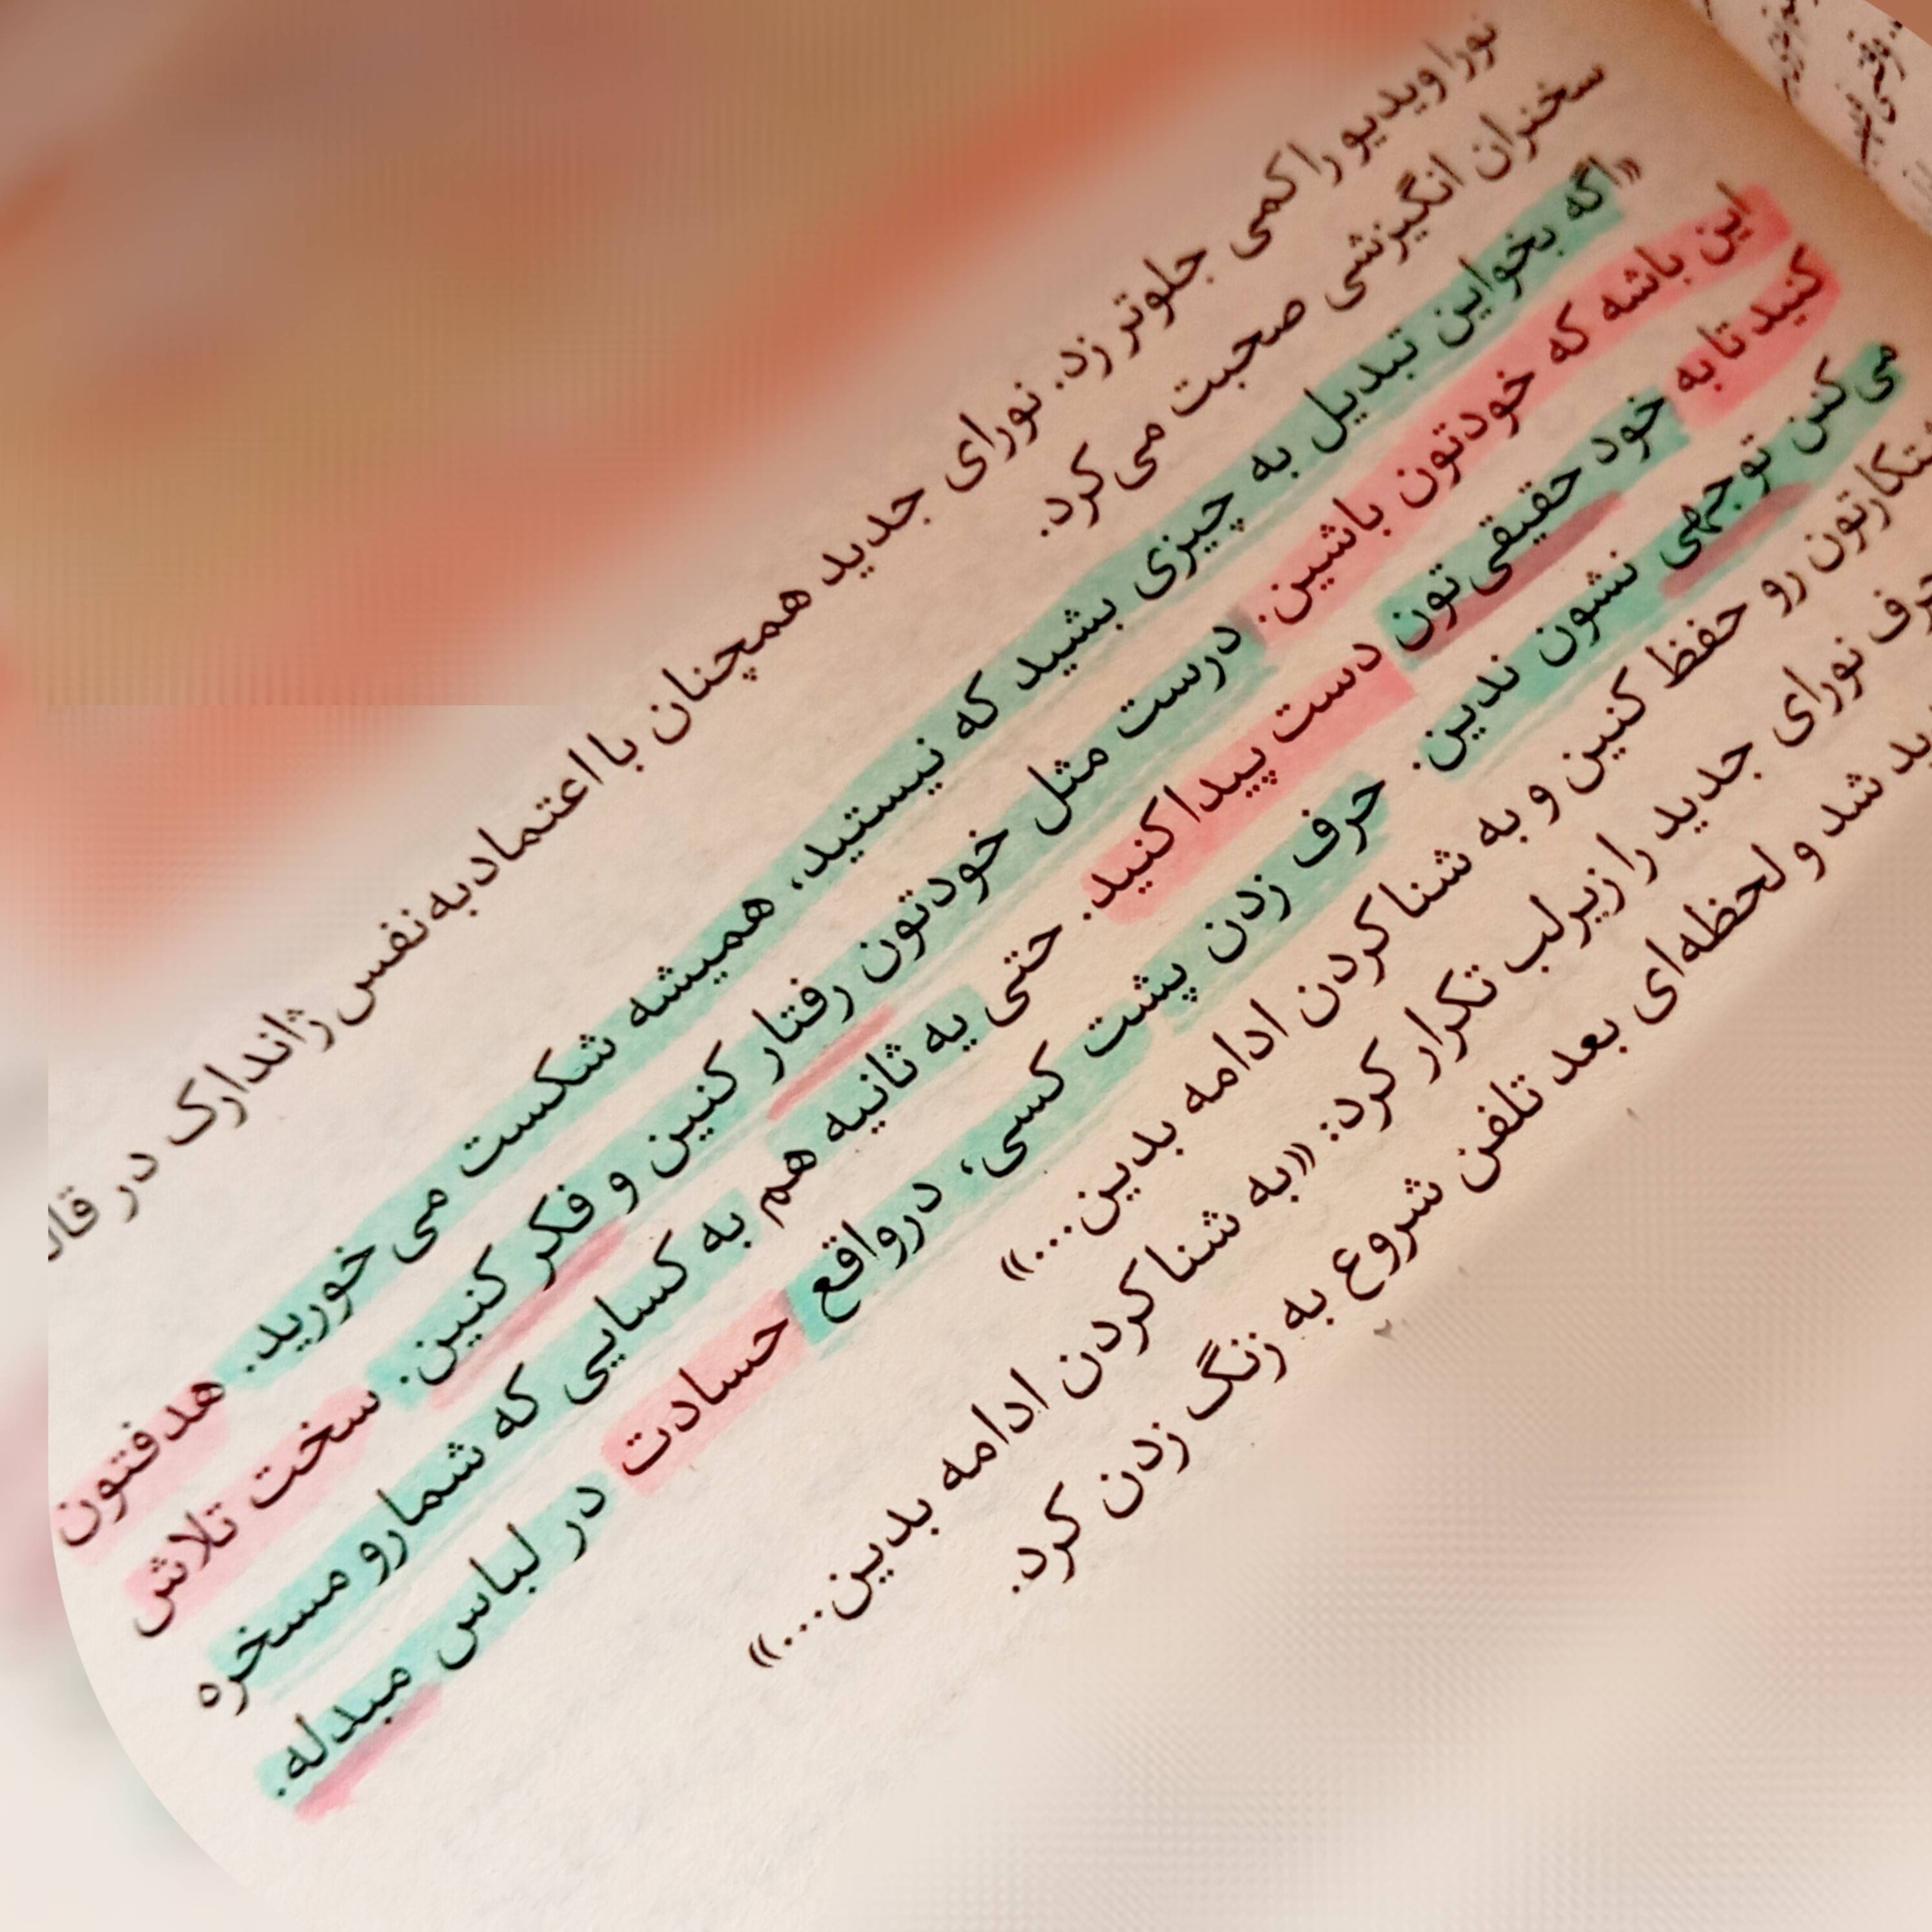 نورا ویدیو را کمی جلوتر زد. نورای جدید همچنان با اعتمادبه‌نفس ژاندارک در
سخنران انگیزشی صحبت می‌کرد.
«اگه بخواین تبدیل به چیزی بشید که نیستید، همیشه شکست می خورید. هدفتون
این باشه که خودتون باشین. درست مثل خودتون رفتار کنین و فکر کنین. سخت تلاش
کنید تا به خود حقیقی‌تون دست پیدا کنید. حتی یه ثانیه هم به کسایی که شمارو مسخره
می‌کنن توجهی نشون ندین. حرف زدن پشت کسی، درواقع حسادت در لباس مبدله.
رو حفظ کنین و به شنا کردن ادامه بدین...»
نورای جدید را زیرلب تکرار کرد: «به شنا کردن ادامه بدین...»
شد و لحظه‌ای بعد تلفن شروع به زنگ زدن کرد.